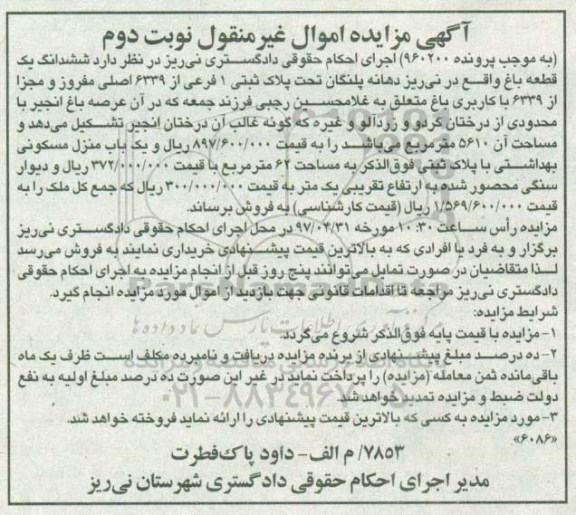 آگهی مزایده اموال غیرمنقول نوبت دوم
(به موجب پرونده ۹۶۰۲۰۰) اجرای احکام حقوقی دادگستری نی‌ریز در نظر دارد ششدانگ یک
قطعه باغ واقع در نی‌ریز دهانه پلنگان تحت پلاک ثبتی ۱ فرعی از ۶۳۳۹ اصلی مفروز و مجزا
از ۶۳۳۹ با کاربری باغ متعلق به غلامحسین رجبی فرزند جمعه که در آن عرصه باغ انجیر با
محدودی از درختان گردو و زردآلو و غیره که گونه غالب آن درختان انجیر تشکیل می‌دهد و
مساحت آن ۵۶۱۰ مترمربع می‌باشد را به قیمت ۸۹۷/۶۰۰/۰۰۰ ریال و یک باب منزل مسکونی
بهداشتی با پلاک ثبتی فوق‌الذکر به مساحت ۶۲ مترمربع با قیمت ۳۷۲/۰۰۰/۰۰۰ ریال و دیوار
سنگی محصور شده به ارتفاع تقریبی یک متر به قیمت ۳۰۰/۰۰۰/۰۰۰ ریال که جمع کل ملک را به
قیمت ۱/۵۶۹/۶۰۰/۰۰۰ ریال (قیمت کارشناسی) به فروش برساند.
مزایده رأس ساعت ۱۰:۳۰ مورخه ۹۷/۰۴/۳۱ در محل اجرای احکام حقوقی دادگستری نی‌ریز
برگزار و به فرد یا افرادی که به بالاترین قیمت پیشنهادی خریداری نمایند به فروش می‌رسد
لذا متقاضیان در صورت تمایل می‌توانند پنج روز قبل از انجام مزایده به اجرای احکام حقوقی
دادگستری نی‌ریز مراجعه تا اقدامات قانونی جهت بازدید از اموال مورد مزایده انجام گیرد.
شرایط مزایده:
۱- مزایده با قیمت پایه فوق‌الذکر شروع می‌گردد.
۲- ده درصد مبلغ پیشنهادی از برنده مزایده دریافت و نامبرده مکلف است ظرف یک ماه
باقی‌مانده ثمن معامله (مزایده) را پرداخت نماید در غیر این صورت ده درصد مبلغ اولیه به نفع
دولت ضبط و مزایده تمدید خواهد شد.
۳- مورد مزایده به کسی که بالاترین قیمت پیشنهادی را ارائه نماید فروخته خواهد شد.
«۶۰۸۶»
۷۸۵۳/ م الف- داود پاک‌فطرت
مدیر اجرای احکام حقوقی دادگستری شهرستان نی‌ریز